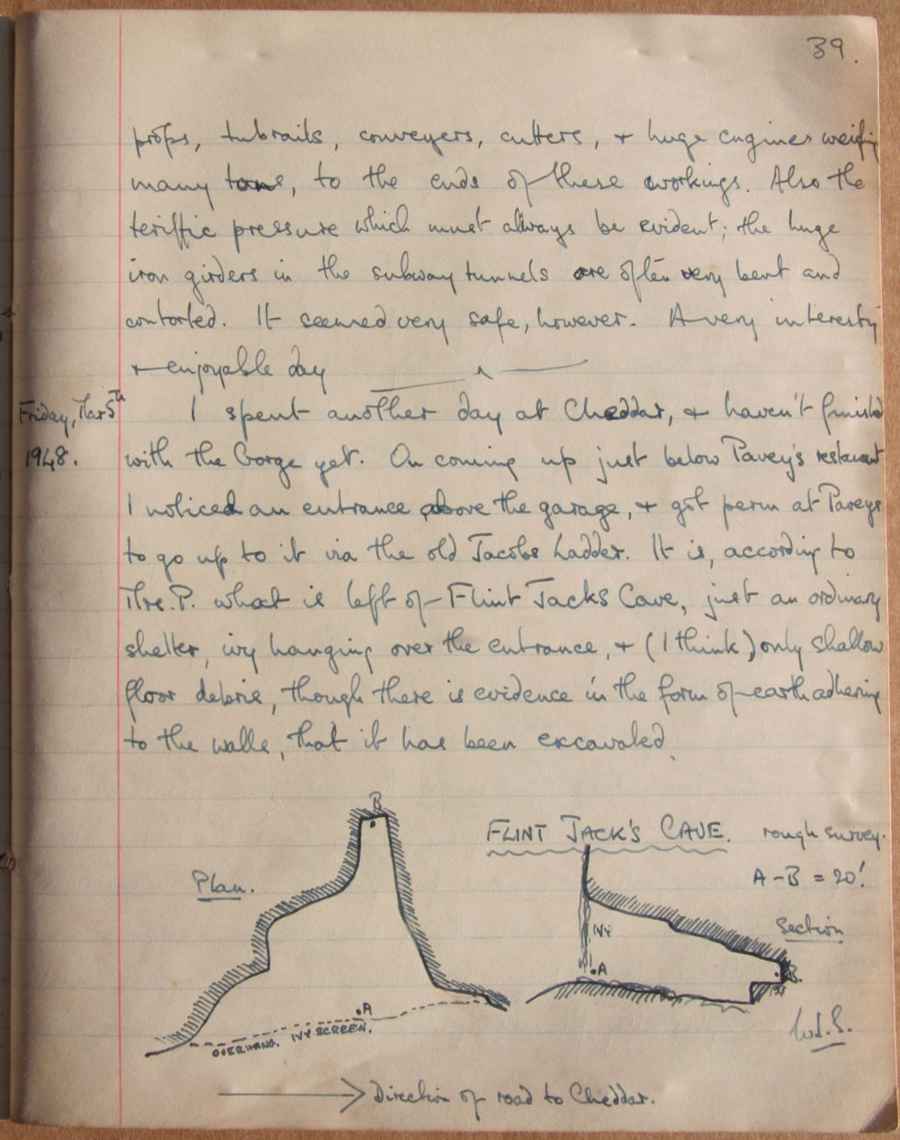 39.
props, tubrails, conveyers, cutters, + huge engines weighing
many tons, to the ends of these workings. Also the
teriffic pressure which must always be evident; the huge
iron girders in the subway tunnels are often very bent and
contorted. It seemed very safe, however. A very interesting
+ enjoyable day
Friday, Mar 5th
1948.
I spent another day at Cheddar, + haven't finished
with the Gorge yet. On coming up just below Pavey's restaurant
I noticed an entrance above the garage, + got perm at Paveys
to go up to it via the old Jacobs Ladder. It is, according to
Mrs. P. what is left of Flint Jacks Cave, just an ordinary
shelter, ivy hanging over the entrance, + (I think) only shallow
floor debris, though there is evidence in the form of earth adhering
to the walls, that it has been excavated.
B
FLINT JACK'S CAVE. rough survey.
Plan.
A-B = 20'.
Section
IVY
A
B.
A
OVERHANG. IVY SCREEN.
W.I.S.
Direction of road to Cheddar.